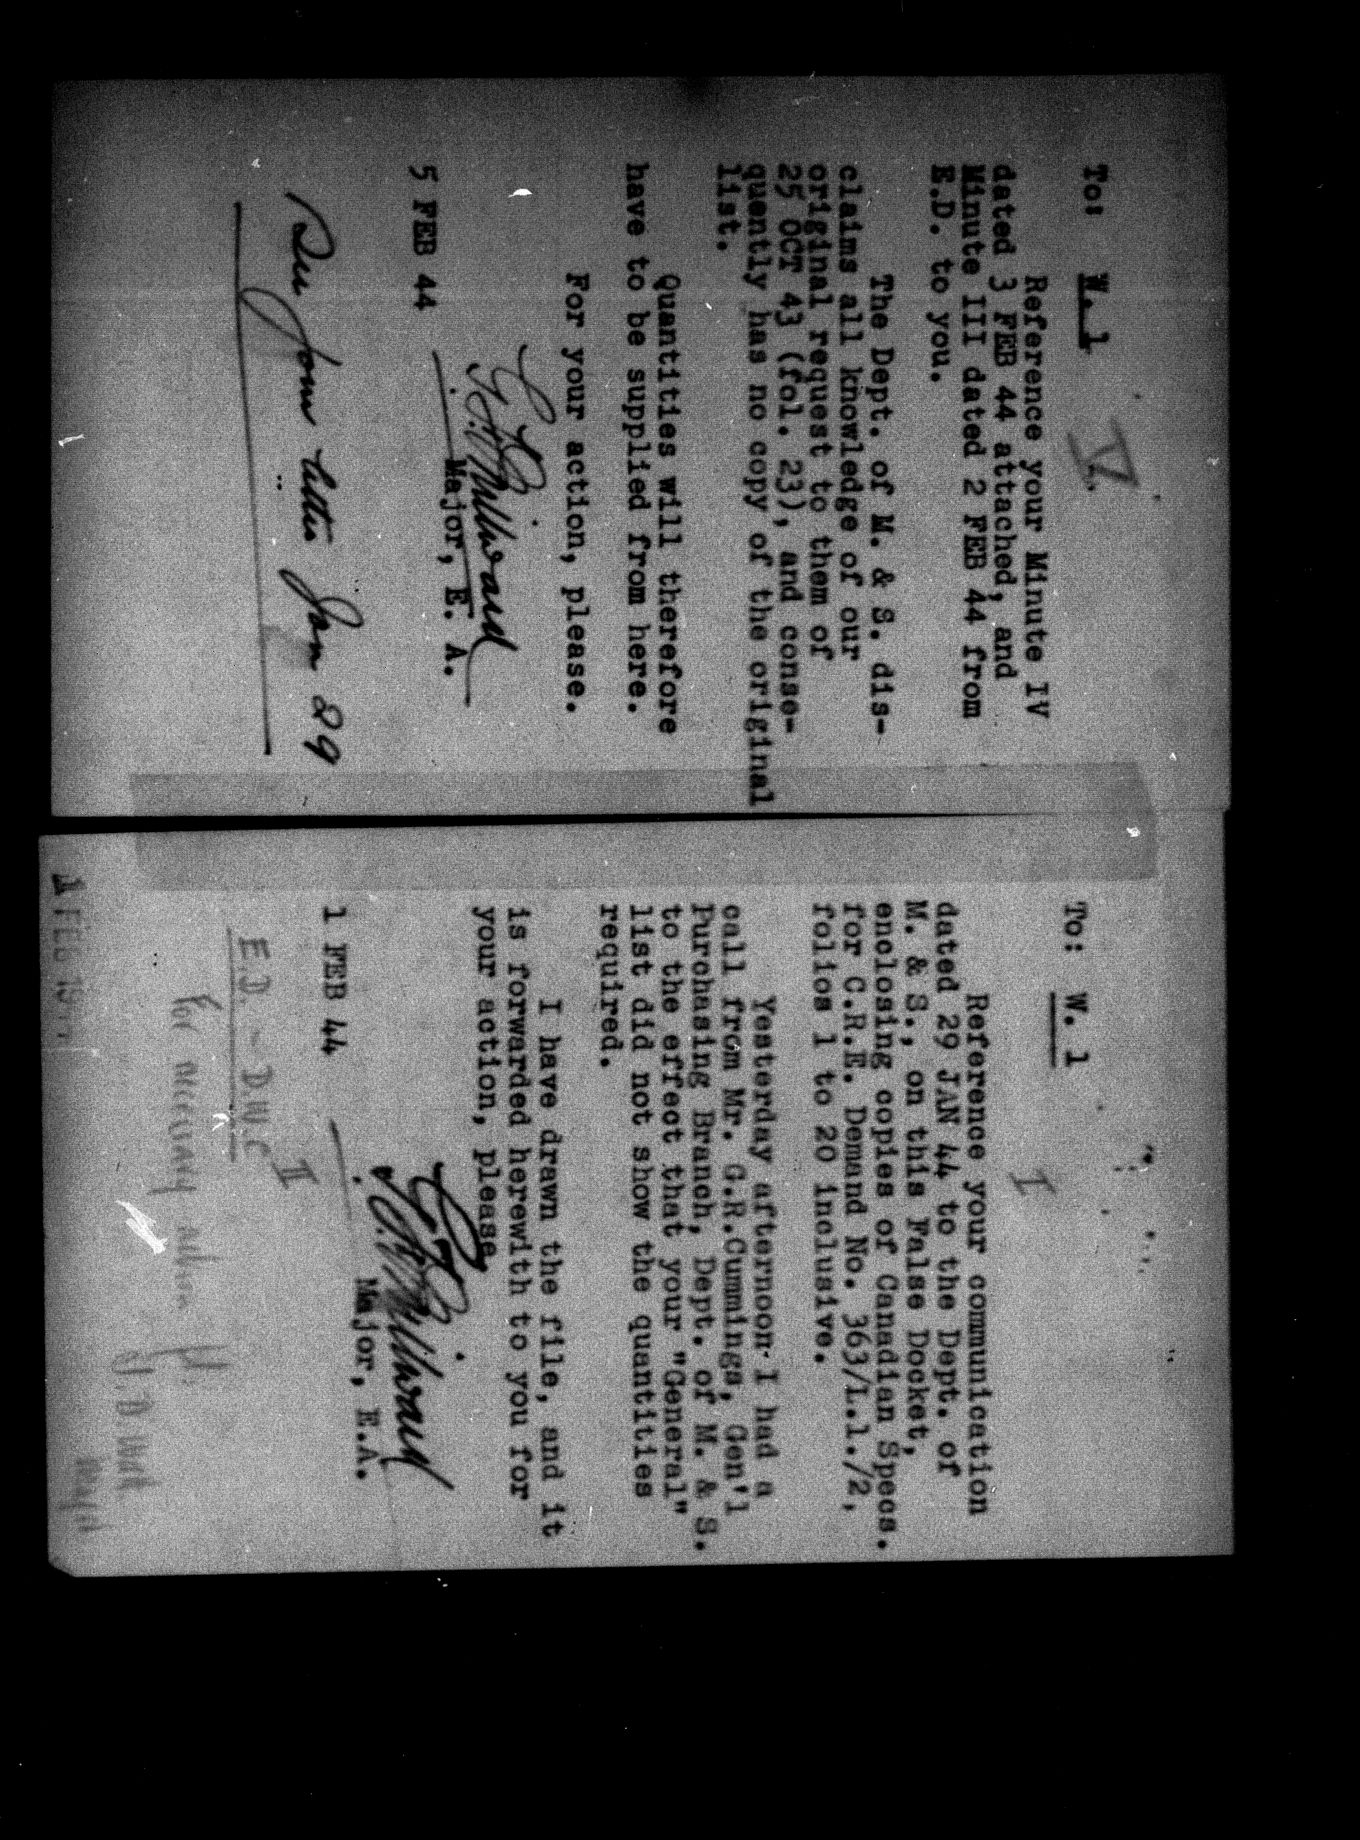 To: W. 1
V.
Reference your Minute IV
dated 3 FEB 44 attached, and
Minute III dated 2 FEB 44 from
E.D. to you.
The Dept. of M. & S. dis-
claims all knowledge of our
original request to them of
25 OCT 43 (fol. 23), and conse-
quently has no copy of the original
list.
Quantities will therefore
have to be supplied from here.
For your action, please.
Major, E. A.
5 FEB 44
See your letter Jan 29
To: W. 1
I
Reference your communication
dated 29 JAN 44 to the Dept. of
M. & S., on this False Docket,
enclosing copies of Canadian Specs.
for C.R.E. Demand No. 363/L.1./2,
folios 1 to 20 inclusive.
Yesterday afternoon I had a
call from Mr. G.R.Cummings, Gen'l
Purchasing Branch, Dept. of M. & S.
to the effect that your "General"
list did not show the quantities
required.
I have drawn the file, and it
is forwarded herewith to you for
your action, please.
Major, E.A.
1 FEB 44
II
E.D. - D.W.C
For necessary action pl.
Major
1 FEB 1944